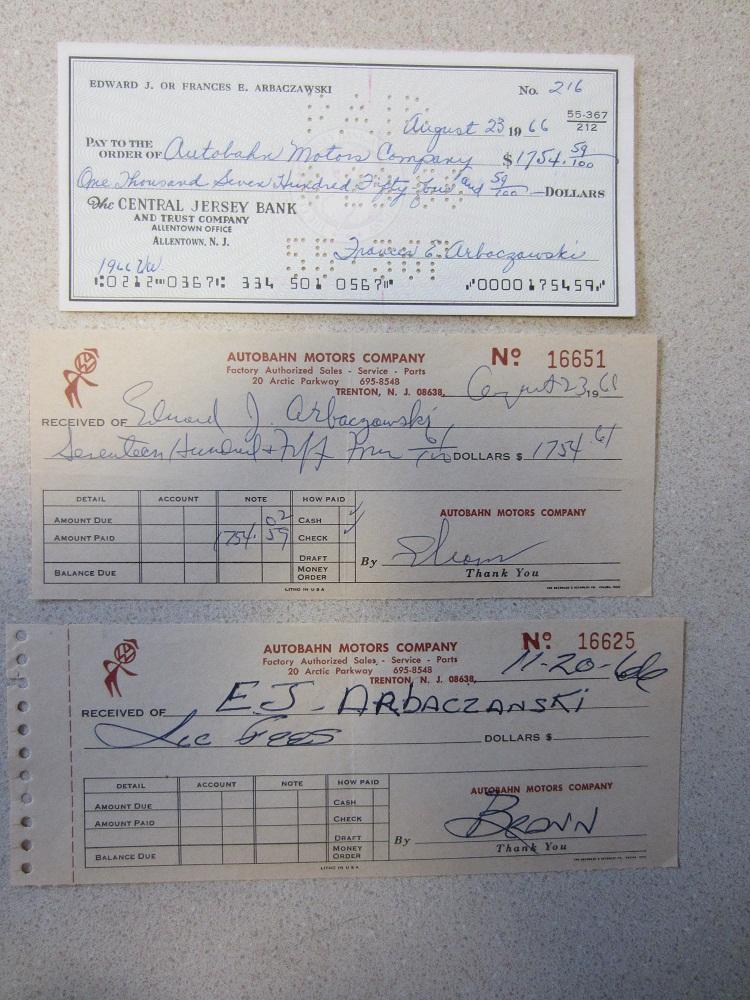 EDWARD J. OR FRANCES E. ARBACZAWSKI
No. 216
August 23 1966
55-367
212
PAY TO THE
ORDER OF Autobahn Motors Company $1754. 59/100
One Thousand Seven Hundred Fifty four and 59/100 DOLLARS
The CENTRAL JERSEY BANK
AND TRUST COMPANY
ALLENTOWN OFFICE
ALLENTOWN, N. J.
Frances E. Arbaczawski
1966 VW
0212 0367 334 501 0567 0000175459
AUTOBAHN MOTORS COMPANY
Factory Authorized Sales - Service - Parts
20 Arctic Parkway 695-8548
TRENTON, N. J. 08638,
No 16651
August 23, 19
RECEIVED OF Edward J. Arbaczowski
Seventeen Hundred + Fifty Four 61/100 DOLLARS $ 1754.61
DETAIL ACCOUNT NOTE HOW PAID
AMOUNT DUE .02 CASH ✓
AMOUNT PAID 1754.59 CHECK ✓
DRAFT
BALANCE DUE MONEY ORDER
AUTOBAHN MOTORS COMPANY
By
Thank You
LITHO IN U S A
AUTOBAHN MOTORS COMPANY
Factory Authorized Sales - Service - Parts
20 Arctic Parkway 695-8548
TRENTON, N. J. 08638,
No 16625
11-20-66
RECEIVED OF E J - ARBACZANSKI
Lic Fees DOLLARS $
DETAIL ACCOUNT NOTE HOW PAID
AMOUNT DUE CASH
AMOUNT PAID CHECK
DRAFT
BALANCE DUE MONEY ORDER
AUTOBAHN MOTORS COMPANY
By BROWN
Thank You
LITHO IN U S A